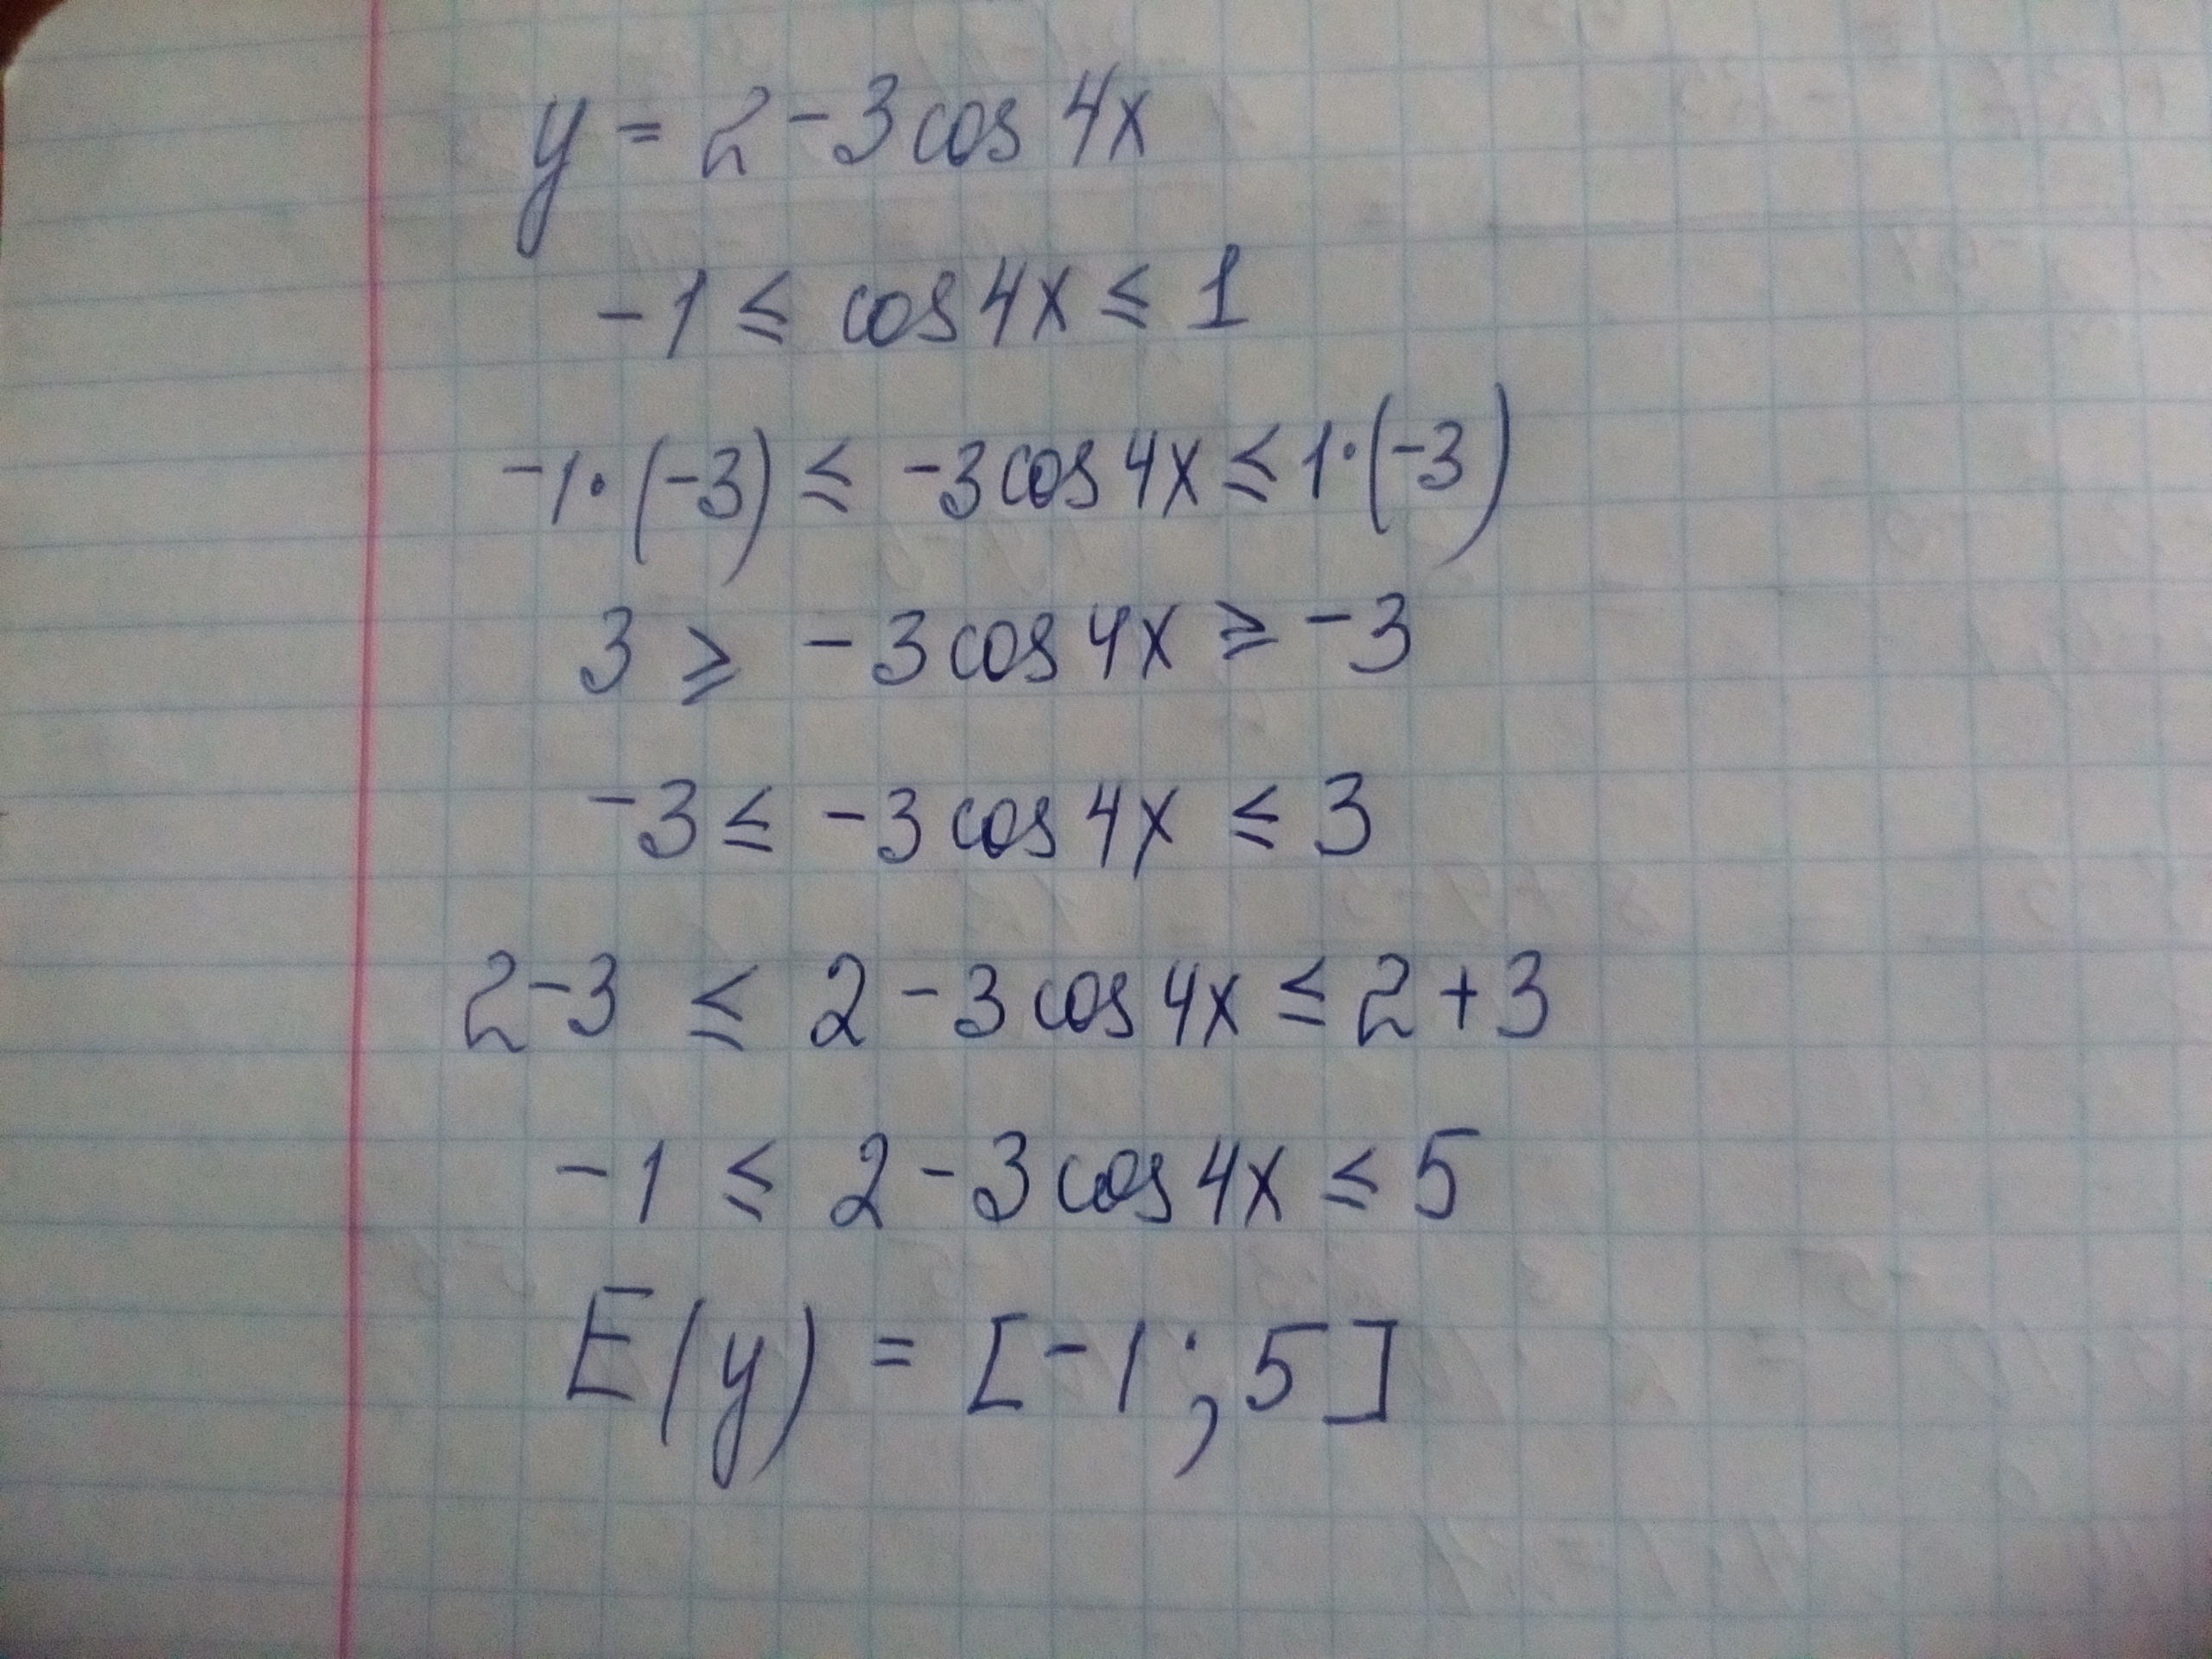 y = 2 - 3 cos 4x
-1 ≤ cos 4x ≤ 1
-1 · (-3) ≤ -3 cos 4x ≤ 1 · (-3)
3 ≥ -3 cos 4x ≥ -3
-3 ≤ -3 cos 4x ≤ 3
2 - 3 ≤ 2 - 3 cos 4x ≤ 2 + 3
-1 ≤ 2 - 3 cos 4x ≤ 5
E(y) = [-1; 5]